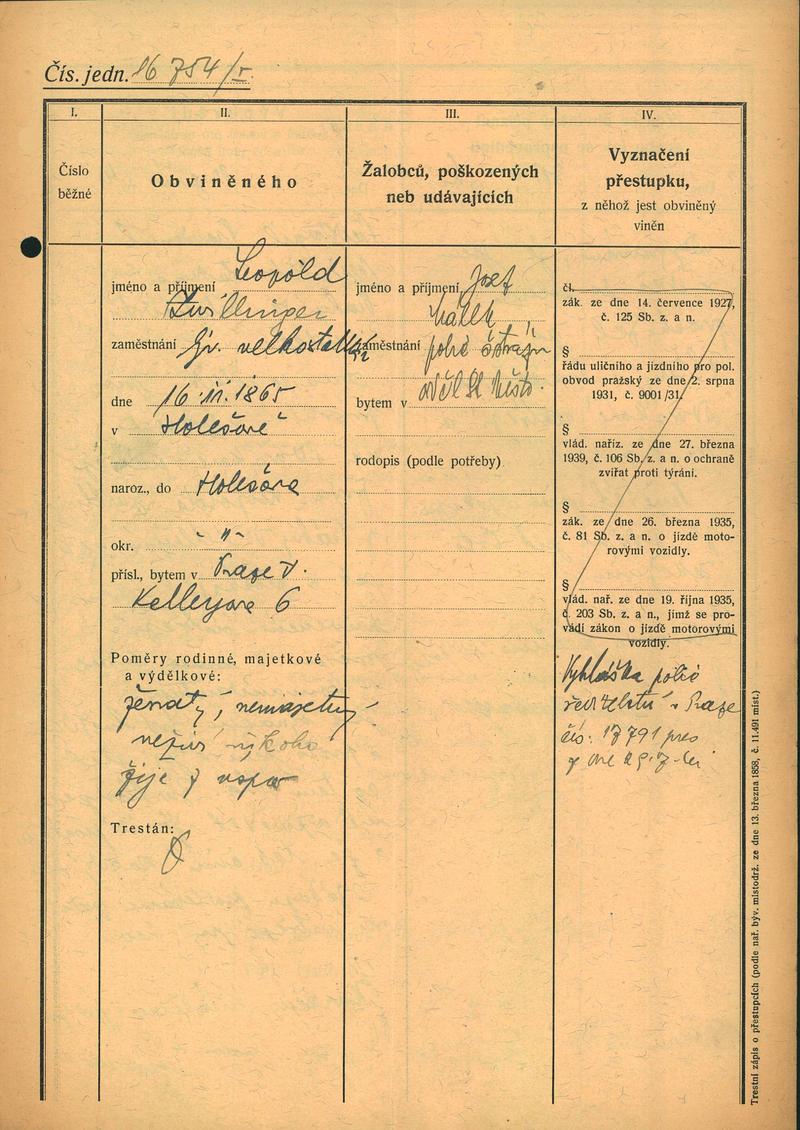 Čís. jedn. 16 754/I.
I.
Číslo
běžné
II.
Obviněného
III.
Žalobců, poškozených
neb udávajících
IV.
Vyznačení
přestupku,
z něhož jest obviněný
viněn
jméno a příjmení Leopold
Zwillinger
zaměstnání
dne 16.11.1865
v Holešově
naroz., do Holešova
okr. - " -
přísl., bytem v Praze V.
6
Poměry rodinné, majetkové
a výdělkové:
ženatý, nemajetný
neživí nikoho
žije z úspor
Trestán:
jméno a příjmení Josef
Málek
zaměstnání
bytem v
rodopis (podle potřeby)
čl.
zák. ze dne 14. července 1927,
č. 125 Sb. z. a n.
§
řádu uličního a jízdního pro pol.
obvod pražský ze dne 2. srpna
1931, č. 9001/31.
§
vlád. naříz. ze dne 27. března
1939, č. 106 Sb. z. a n. o ochraně
zvířat proti týrání.
§
zák. ze dne 26. března 1935,
č. 81 Sb. z. a n. o jízdě moto-
rovými vozidly.
§
vlád. nař. ze dne 19. října 1935,
č. 203 Sb. z. a n., jímž se pro-
vádí zákon o jízdě motorovými
vozidly.
Vyhláška polic
ředitelství v Praze
čís: 17791 pres
z dne
Trestní zápis o přestupcích (podle nař. býv. místodrž. ze dne 13. března 1858, č. 11.491 míst.)